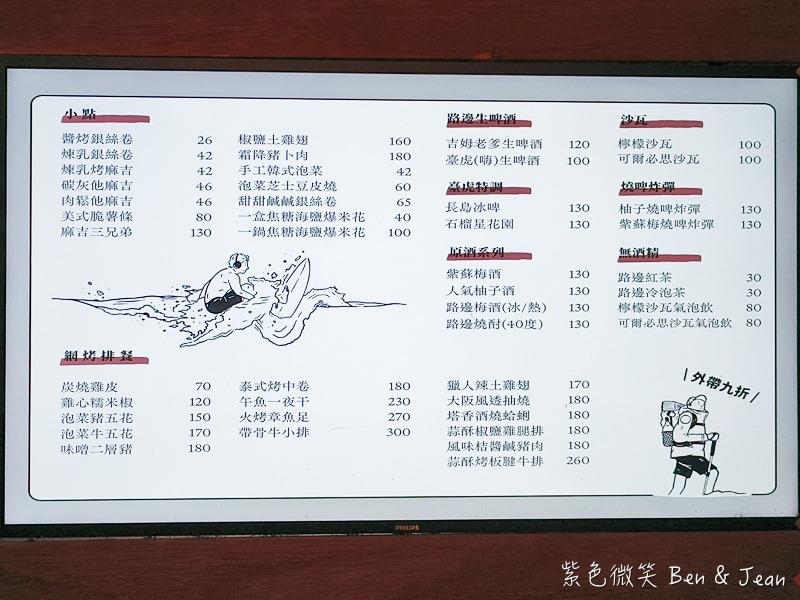 小點
醬烤銀絲卷 26
煉乳銀絲卷 42
煉乳烤麻吉 42
碳灰他麻吉 46
肉鬆他麻吉 46
美式脆薯條 80
麻吉三兄弟 130
椒鹽土雞翅 160
霜降豬卜肉 180
手工韓式泡菜 42
泡菜芝士豆皮燒 60
甜甜鹹鹹銀絲卷 65
一盒焦糖海鹽爆米花 40
一鍋焦糖海鹽爆米花 100
網烤排餐
炭燒雞皮 70
雞心糯米椒 120
泡菜豬五花 150
泡菜牛五花 170
味噌二層豬 180
泰式烤中卷 180
午魚一夜干 230
火烤章魚足 270
帶骨牛小排 300
路邊生啤酒
吉姆老爹生啤酒 120
臺虎(嗨)生啤酒 100
臺虎特調
長島冰啤 130
石榴星花園 130
原酒系列
紫蘇梅酒 130
人氣柚子酒 130
路邊梅酒(冰/熱) 130
路邊燒酎(40度) 130
獵人辣土雞翅 170
大阪風透抽燒 180
塔香酒燒蛤蜊 180
蒜酥椒鹽雞腿排 180
風味桔醬鹹豬肉 180
蒜酥烤板腱牛排 260
沙瓦
檸檬沙瓦 100
可爾必思沙瓦 100
燒啤炸彈
柚子燒啤炸彈 130
紫蘇梅燒啤炸彈 130
無酒精
路邊紅茶 30
路邊冷泡茶 30
檸檬沙瓦氣泡飲 80
可爾必思沙瓦氣泡飲 80
\ 外帶九折 /
PHILIPS
紫色微笑 Ben & Jean